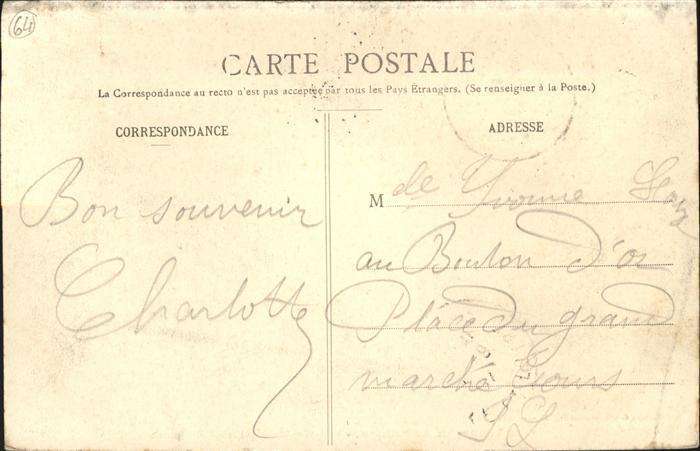 64
CARTE POSTALE
La Correspondance au recto n'est pas acceptée par tous les Pays Étrangers. (Se renseigner à la Poste.)
CORRESPONDANCE
ADRESSE
Bon souvenir
Charlotte
M de Yvonne
au Bouton d'or
Place du grand
marché Tours